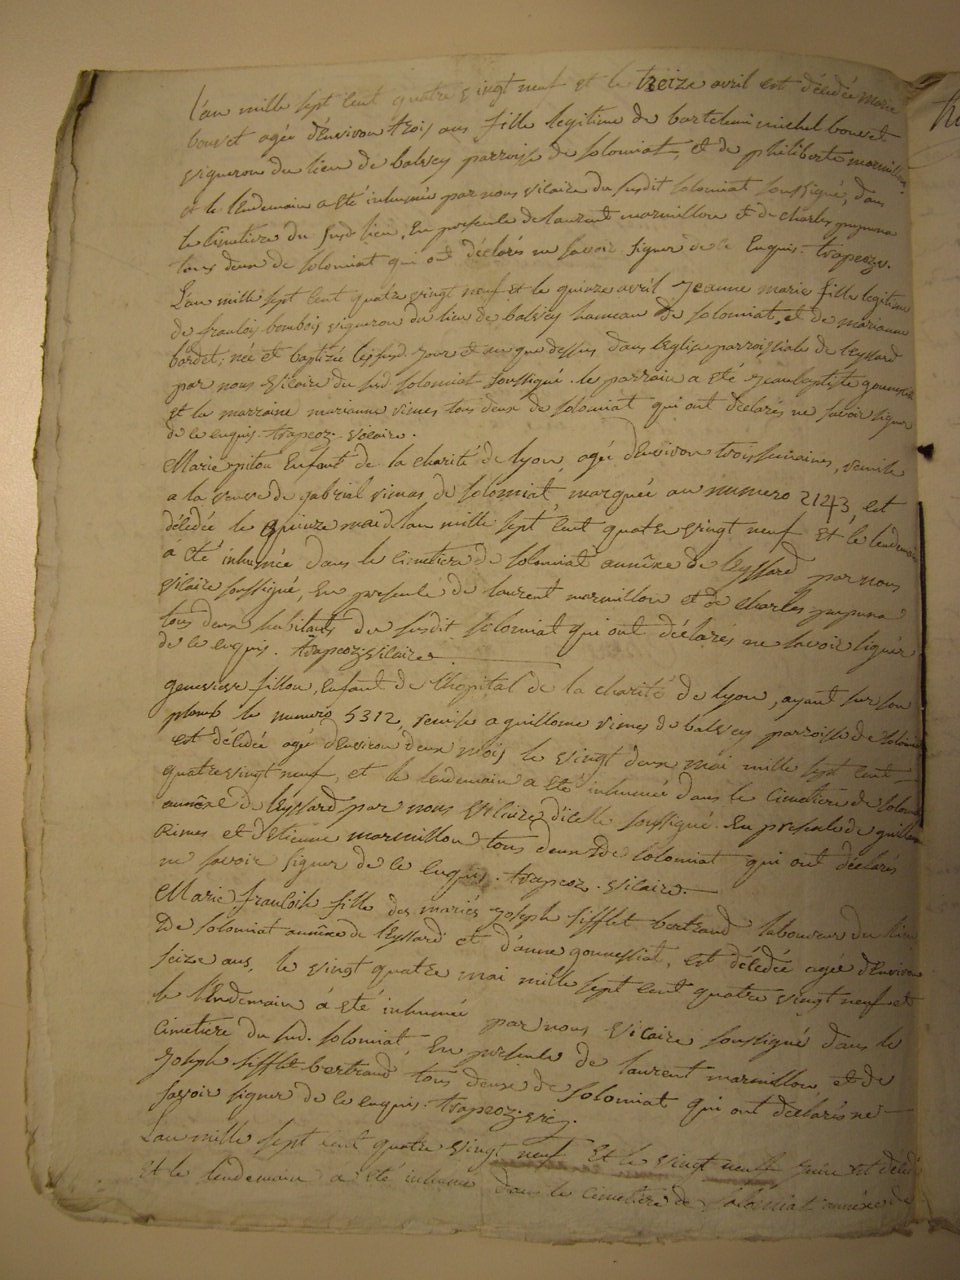 L'an mille sept cent quatre vingt neuf et le treize avril est décédée marie
bouvet agée d'environ trois ans fille legitime de bartelemi michel bouvet
vigneron du lieu de balvey parroisse de solomiat, et de philiberte marmillon
et le lendemain a eté inhumée par nous vicaire du susdit solomiat soussigné, dans
le cimetiere du susd lieu, En presence de laurent marmillon et de charles
tous deux de solomiat qui ont déclarés ne savoir signer de ce Enquis. trapeoz v.
L'an mille sept cent quatre vingt neuf et le quinze avril jeanne marie fille legitime
de francois bombois vigneron du lieu de balvey hameau de solomiat, et de marianne
bardet, née et baptizée les susd jour et an que dessus dans l'eglise parroissiale de leyssard
par nous vicaire du sud solomiat soussigné. le parrain a eté jean baptiste
et la marraine marianne vimes tous deux de solomiat qui ont déclarés ne savoir signer
de ce enquis. trapeoz. vicaire.
Marie pitou Enfant de la charité de lyon, agée d'environ trois semaines, remise
a la veuve de gabriel vimes de solomiat, marquée au numero 21243, est
décédée le quinze mai l'an mille sept cent quatre vingt neuf Et le lendemain
a été inhumée dans le cimetiere de solomiat annêxe de leyssard par nous
vicaire soussigné, En presence de laurent marmillon et de charles
tous deux habitants du susdit solomiat qui ont déclarés ne savoir signer
de ce enquis. trapeoz vicaire
genevieve fillon, Enfant de l'hopital de la charité de lyon, ayant sur son
plomb le numero 5312, remise a guillome vimes de balvey parroisse de solomiat
est décédée agée d'environ deux mois le vingt deux mai mille sept cent
quatre vingt neuf, et le lendemain a eté inhumée dans le cimetiere de solomiat
annêxe de leyssard par nous vicaire d'icelle soussigné. En presence de guillome
vimes et d'Etienne marmillon tous deux de solomiat qui ont déclarés
ne savoir signer de ce enquis. trapeoz. vicaire.
Marie francoise fille des mariés joseph sifflet bertrand laboureur du lieu
De solomiat annêxe de leyssard et d'anne gounessiat, est décédée agée d'Environ
seize ans, le vingt quatre mai mille sept cent quatre vingt neuf et
le lendemain á eté inhumée par nous vicaire soussigné dans le
cimetiere du sud. solomiat, En presence de laurent marmillon et de
joseph sifflet bertrand tous deux de solomiat qui ont déclarés ne
savoir signer de ce enquis. trapeoz. vic.
L'an mille sept cent quatre vingt neuf Et le vingt neuf juin est décédé
Et le lendemain a eté inhumé dans le cimetiere de solomiat annêxe de